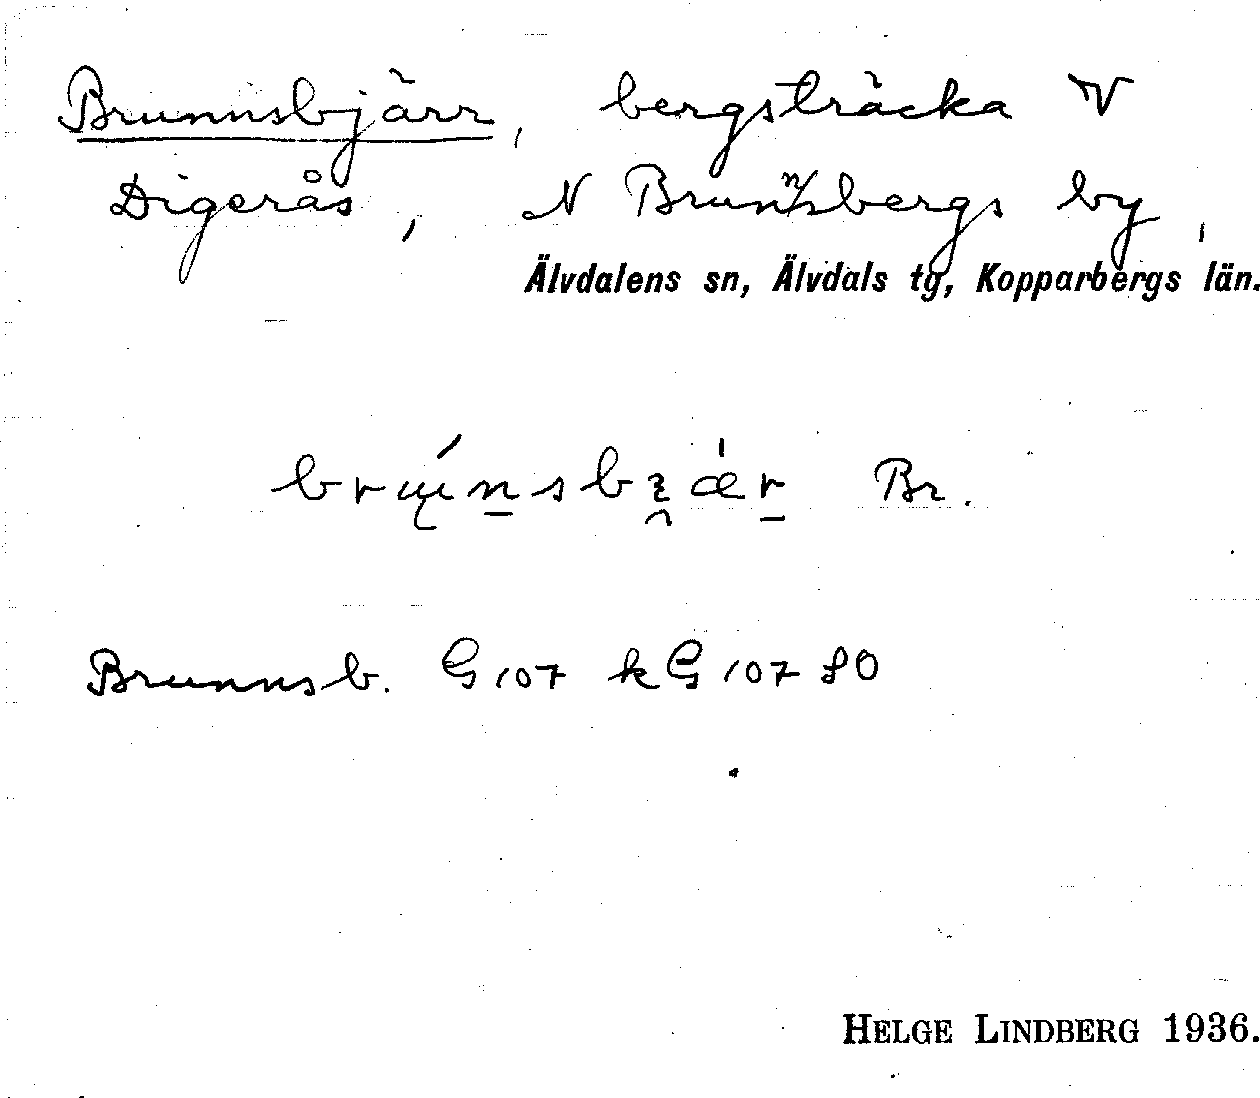 Brunnsbjärr, bergsträcka V
Digerås, N Brunnsbergs by,
Älvdalens sn, Älvdals tg, Kopparbergs län.
Br.
Brunnsb. G 107 k G 107 80
HELGE LINDBERG 1936.